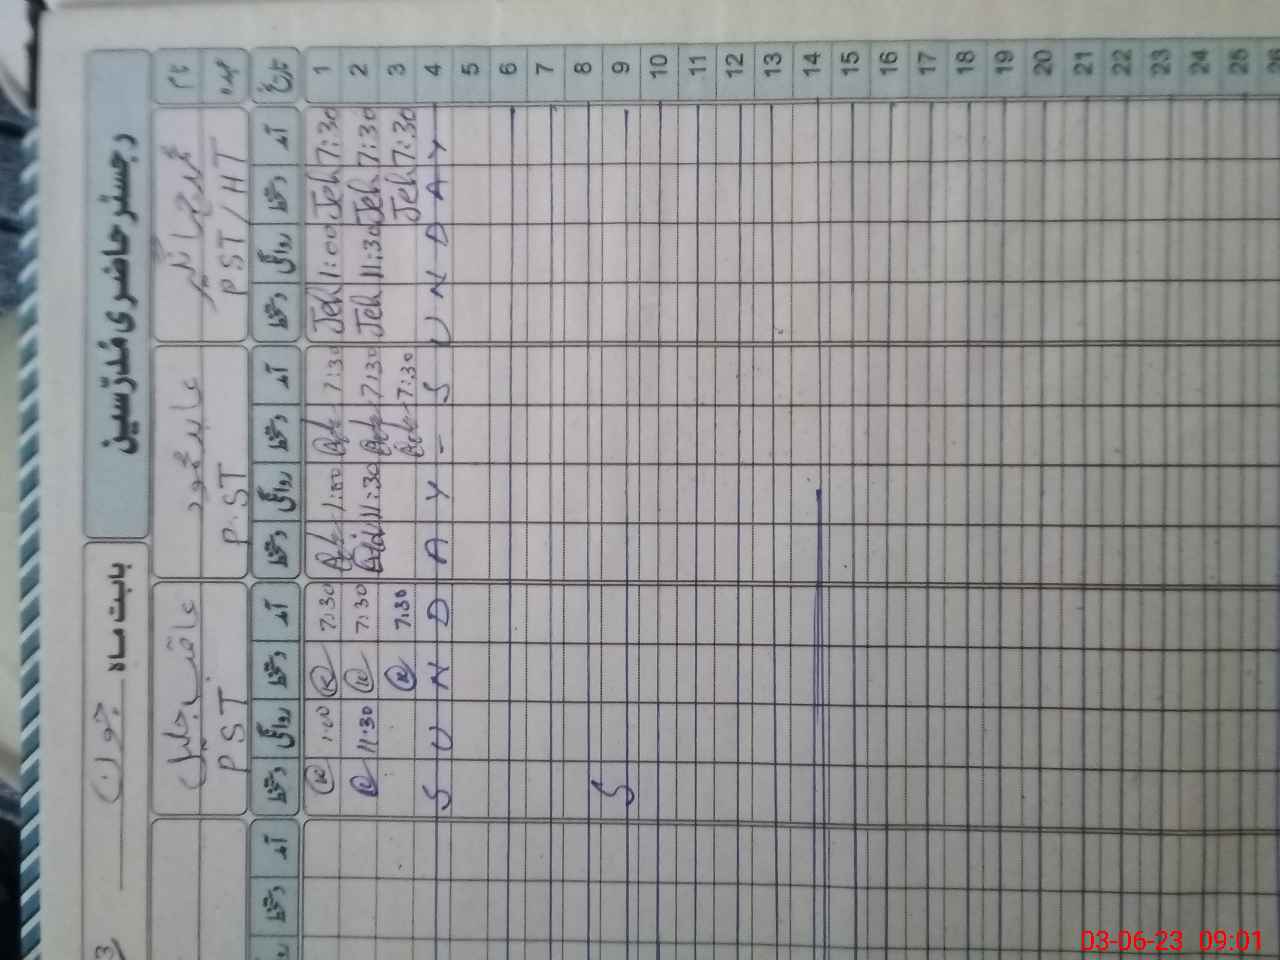 رجسٹر حاضری مُدرّسین
بابت ماہ جون
3
نام
عہدہ
PST / HT
عابد محمود
P.ST
عاقب جلیل
PST
تاریخ آمد دستخط روانگی دستخط آمد دستخط روانگی دستخط آمد دستخط روانگی دستخط آمد دستخط
1 7:30 Jeh 1:00 Jeh 7:30 1:00 7:30 1:00
2 7:30 Jeh 11:30 Jeh 7:30 11:30 7:30 11:30
3 7:30 Jeh 7:30 7:30
4 Y A D N U S - Y A D N U S
5
6
7
8
9 S
10
11
12
13
14
15
16
17
18
19
20
21
22
23
24
25
26
03-06-23 09:01